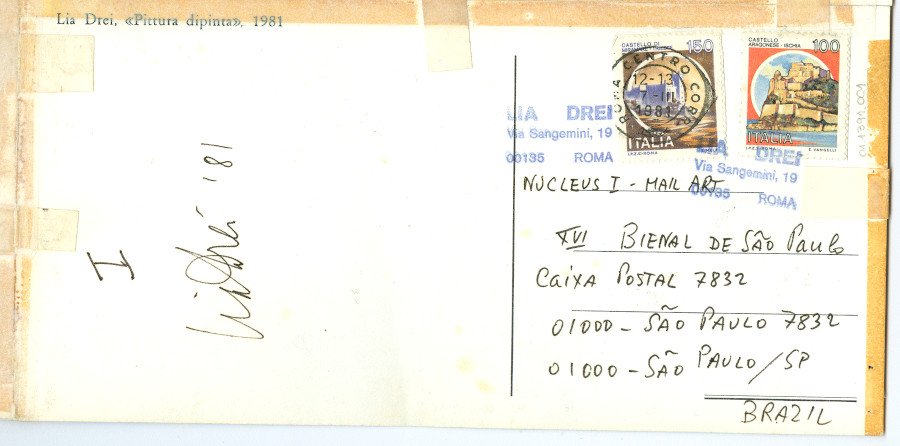 Lia Drei, «Pittura dipinta», 1981
I
Lia Drei '81
CASTELLO DI
150
ITALIA
I.P.Z.S.-ROMA
CASTELLO
ARAGONESE - ISCHIA
100
ITALIA
I.P.Z.S.-ROMA E. VANGELLI
ROMA CENTRO CORR
12-13
7-III
1981
LIA DREI
Via Sangemini, 19
00135 ROMA
LIA DREI
Via Sangemini, 19
00135 ROMA
NUCLEUS I - MAIL ART
XVI BIENAL DE SÃO PAULO
CAIXA POSTAL 7832
01000 - SÃO PAULO 7832
01000 - SÃO PAULO/SP
BRAZIL